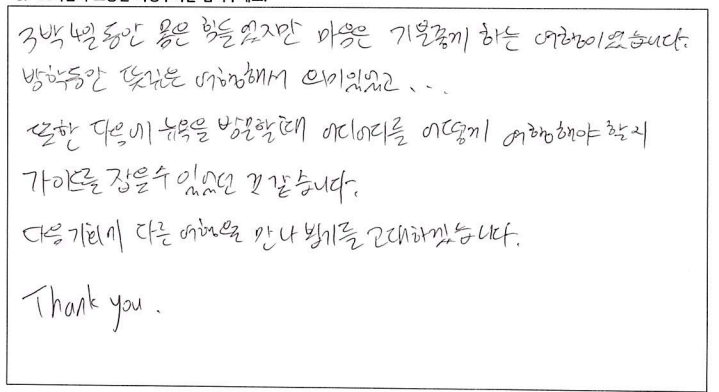 3박4일동안 몸은 힘들었지만 마음은 기분좋게 하는 여행이었습니다.
방학동안 뜻깊은 여행해서 의미있었고...
또한 다음에 뉴욕을 방문할때 어디어디를 어떻게 여행해야 할지
가이드를 잡을수 있었던 것 같습니다.
다음기회에 다른 여행으로 만나뵙기를 고대하겠습니다.
Thank you.